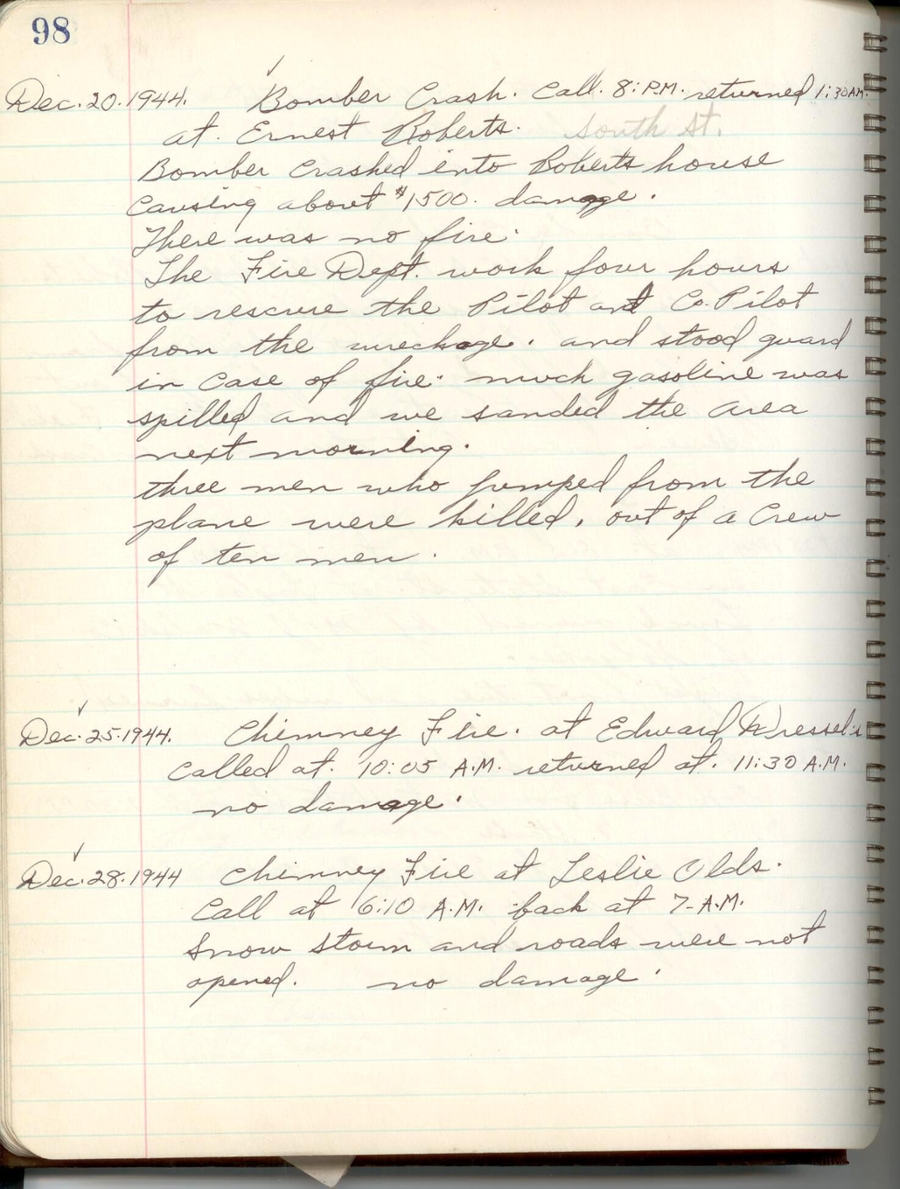 98
Dec. 20. 1944. Bomber Crash. Call. 8: P.M. returned 1:30 A.M.
at. Ernest Roberts. South St.
Bomber Crashed into Roberts house
Causing about $1500. damage.
There was no fire.
The Fire Dept. work four hours
to rescure the Pilot and Co. Pilot
from the wreckage. and stood guard
in case of fire. much gasoline was
spilled and we sanded the area
next morning.
three men who jumped from the
plane were killed. out of a Crew
of ten men.
Dec. 25. 1944. Chimney Fire. at Edward Kressel's
Called at. 10:05 A.M. returned at. 11:30 A.M.
no damage.
Dec. 28. 1944 Chimney Fire at Leslie Olds.
Call at 6:10 A.M. back at 7-A.M.
Snow storm and roads were not
opened. no damage.